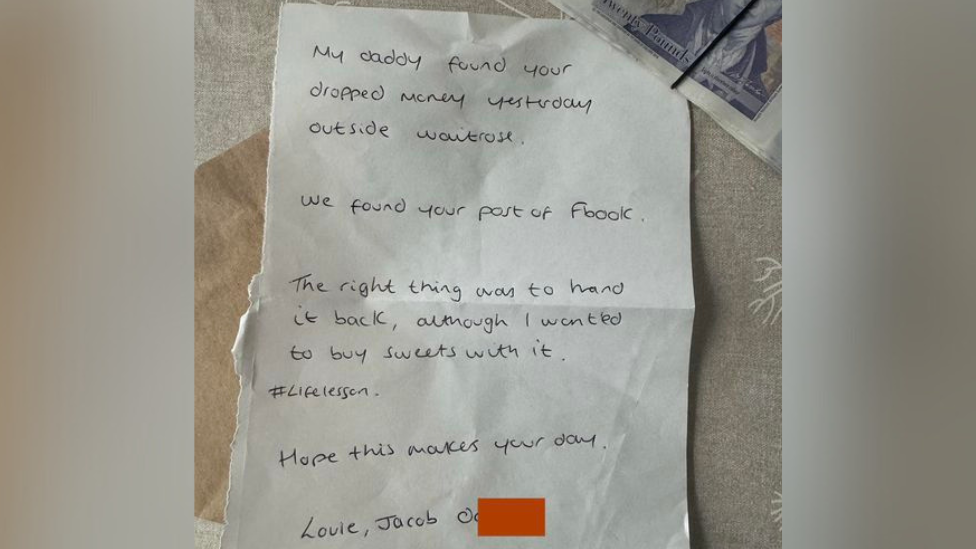 Twenty Pounds
My daddy found your
dropped money yesterday
outside waitrose.
We found your post of Fbook.
The right thing was to hand
it back, although I wanted
to buy sweets with it.
#Lifelesson.
Hope this makes your day.
Louie, Jacob